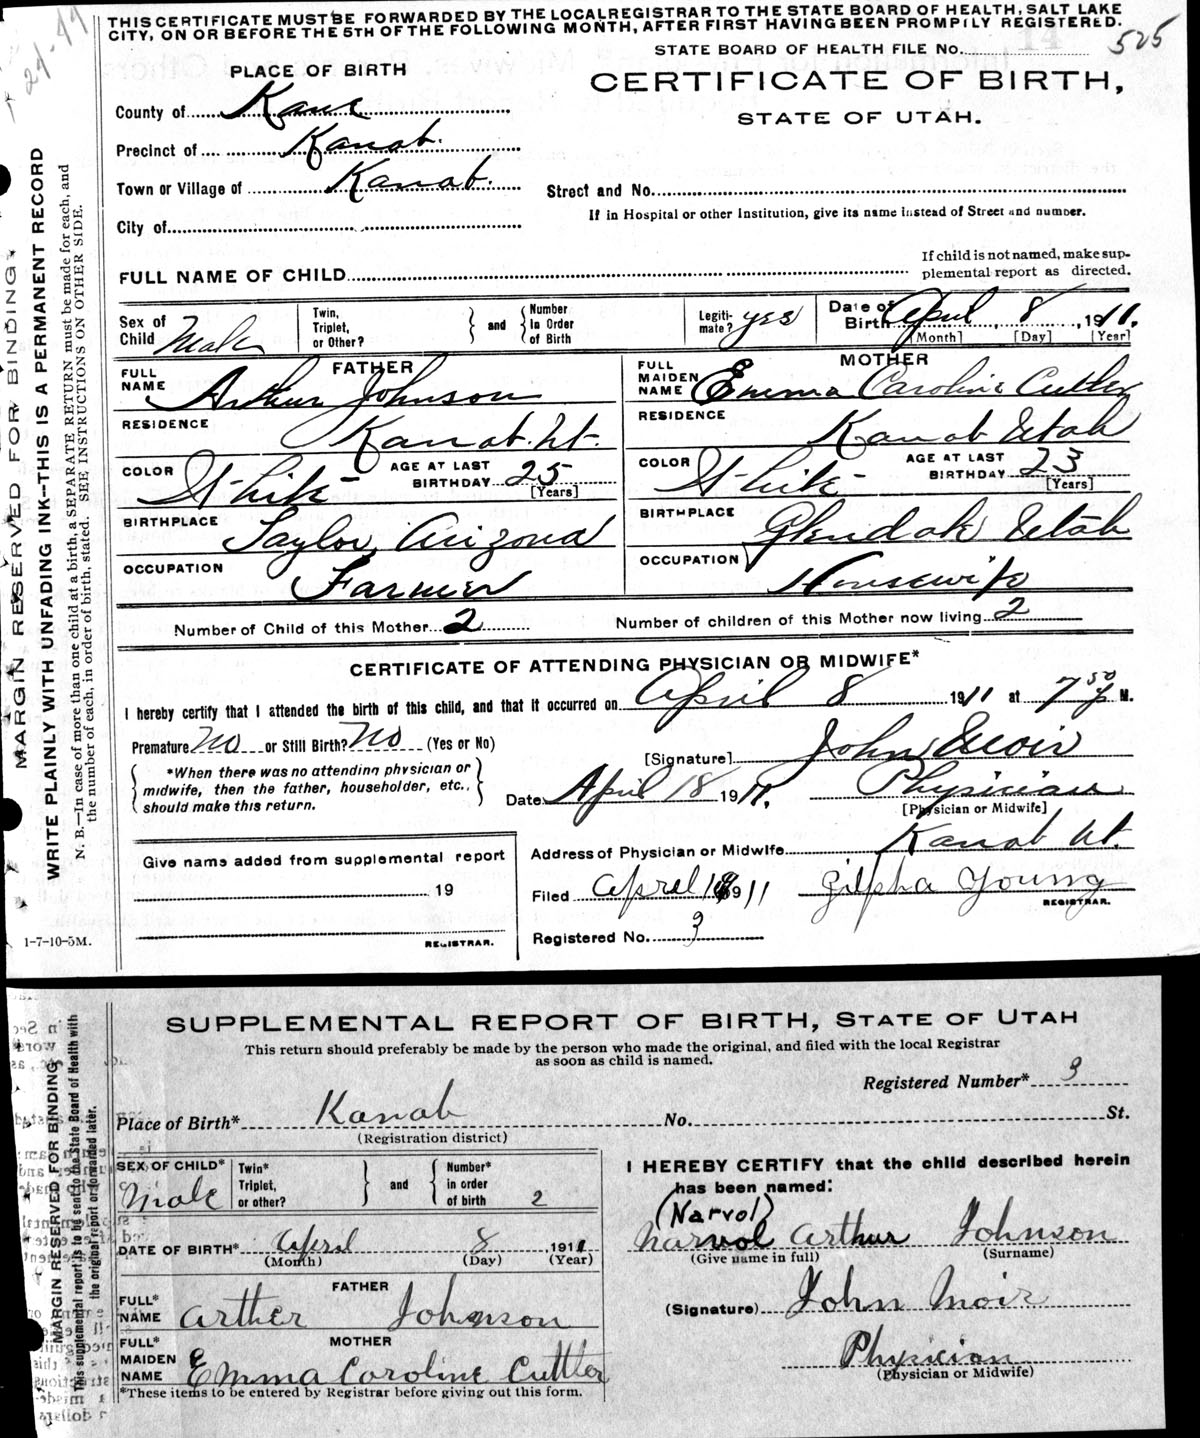 THIS CERTIFICATE MUST BE FORWARDED BY THE LOCAL REGISTRAR TO THE STATE BOARD OF HEALTH, SALT LAKE
CITY, ON OR BEFORE THE 5TH OF THE FOLLOWING MONTH, AFTER FIRST HAVING BEEN PROMPILY REGISTERED.
STATE BOARD OF HEALTH FILE No. 525
PLACE OF BIRTH
CERTIFICATE OF BIRTH,
STATE OF UTAH.
County of Kane
Precinct of Kanab.
Town or Village of Kanab.
Street and No.
If in Hospital or other Institution, give its name instead of Street and number.
City of
FULL NAME OF CHILD
If child is not named, make sup-
plemental report as directed.
Sex of Child Male
Twin, Triplet, or Other? and Number In Order of Birth
Legiti- mate? yes
Date of Birth April 8, 1911.
[Month] [Day] [Year]
FATHER
FULL NAME Arthur Johnson
RESIDENCE Kanab. Ut.
COLOR White
AGE AT LAST BIRTHDAY 25 [Years]
BIRTHPLACE Taylor, Arizona
OCCUPATION Farmer
MOTHER
FULL MAIDEN NAME Emma Caroline Cutler
RESIDENCE Kanab Utah
COLOR White
AGE AT LAST BIRTHDAY 23 [Years]
BIRTHPLACE Glendale Utah
OCCUPATION Housewife
Number of Child of this Mother 2
Number of children of this Mother now living 2
CERTIFICATE OF ATTENDING PHYSICIAN OR MIDWIFE*
I hereby certify that I attended the birth of this child, and that it occurred on April 8 1911 at 7 50 P M.
Premature No or Still Birth? No (Yes or No)
*When there was no attending physician or
midwife, then the father, householder, etc.,
should make this return.
[Signature] John Moir
Date April 18 1911.
Physician
[Physician or Midwife]
Give name added from supplemental report
19
REGISTRAR.
Address of Physician or Midwife Kanab Ut.
Filed April 18 1911
Zilpha Young
REGISTRAR.
Registered No. 3
1-7-10-5M.
MARGIN RESERVED FOR BINDING
WRITE PLAINLY WITH UNFADING INK—THIS IS A PERMANENT RECORD
N. B.—In case of more than one child at a birth, a SEPARATE RETURN must be made for each, and
the number of each, in order of birth, stated. SEE INSTRUCTIONS ON OTHER SIDE.
SUPPLEMENTAL REPORT OF BIRTH, STATE OF UTAH
This return should preferably be made by the person who made the original, and filed with the local Registrar
as soon as child is named.
Registered Number* 3
Place of Birth* Kanab No. St.
(Registration district)
SEX OF CHILD* Male
Twin* Triplet, or other? and Number* in order of birth 2
DATE OF BIRTH* April 8 1911
(Month) (Day) (Year)
FATHER
FULL* NAME Arther Johnson
MOTHER
FULL* MAIDEN NAME Emma Caroline Cuttler
*These items to be entered by Registrar before giving out this form.
I HEREBY CERTIFY that the child described herein
has been named:
(Narvol)
Narvol Arthur Johnson
(Give name in full) (Surname)
(Signature) John Moir
Physician
(Physician or Midwife)
MARGIN RESERVED FOR BINDING
This supplemental report is to be sent to the State Board of Health with
the original report or forwarded later.